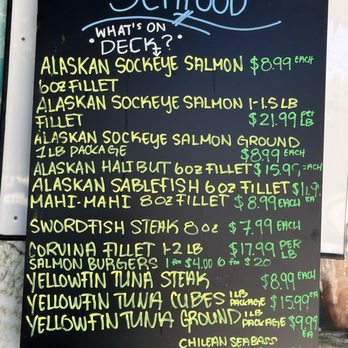 SEAFOOD
WHAT'S ON
DECK?
ALASKAN SOCKEYE SALMON $8.99 EACH
6oz FILLET
ALASKAN SOCKEYE SALMON 1-1.5 LB
FILLET $21.99 PER LB
ALASKAN SOCKEYE SALMON GROUND
1 LB PACKAGE $8.99 EACH
ALASKAN HALIBUT 6oz FILLET $15.99 EACH
ALASKAN SABLEFISH 6oz FILLET
MAHI-MAHI 8oz FILLET $8.99 EA
SWORDFISH STEAK 8oz $7.99 EACH
CORVINA FILLET 1-2 LB $17.99 PER LB
SALMON BURGERS 1 for $4.00 6 for $20
YELLOWFIN TUNA STEAK $8.99 EACH
YELLOWFIN TUNA CUBES 1 LB PACKAGE $15.99 EA
YELLOWFIN TUNA GROUND 1 LB PACKAGE $9.99 EA
CHILEAN SEABASS